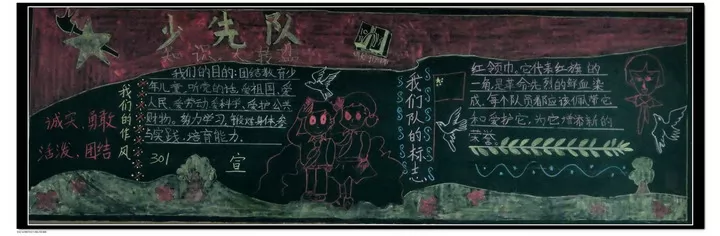 少先队
知识大转盘
诚实,勇敢
活泼,团结
我们的作风
我们的目的:团结教育少
年儿童,听党的话,爱祖国,爱
人民,爱劳动,爱科学,爱护公共
财物,努力学习,锻炼身体,参
与实践,培育能力.
301 宣
我们队的标志
红领巾,它代表红旗的
一角,是革命先烈的鲜血染
成,每个队员都应该佩带它
和爱护它,为它增添新的
荣誉.